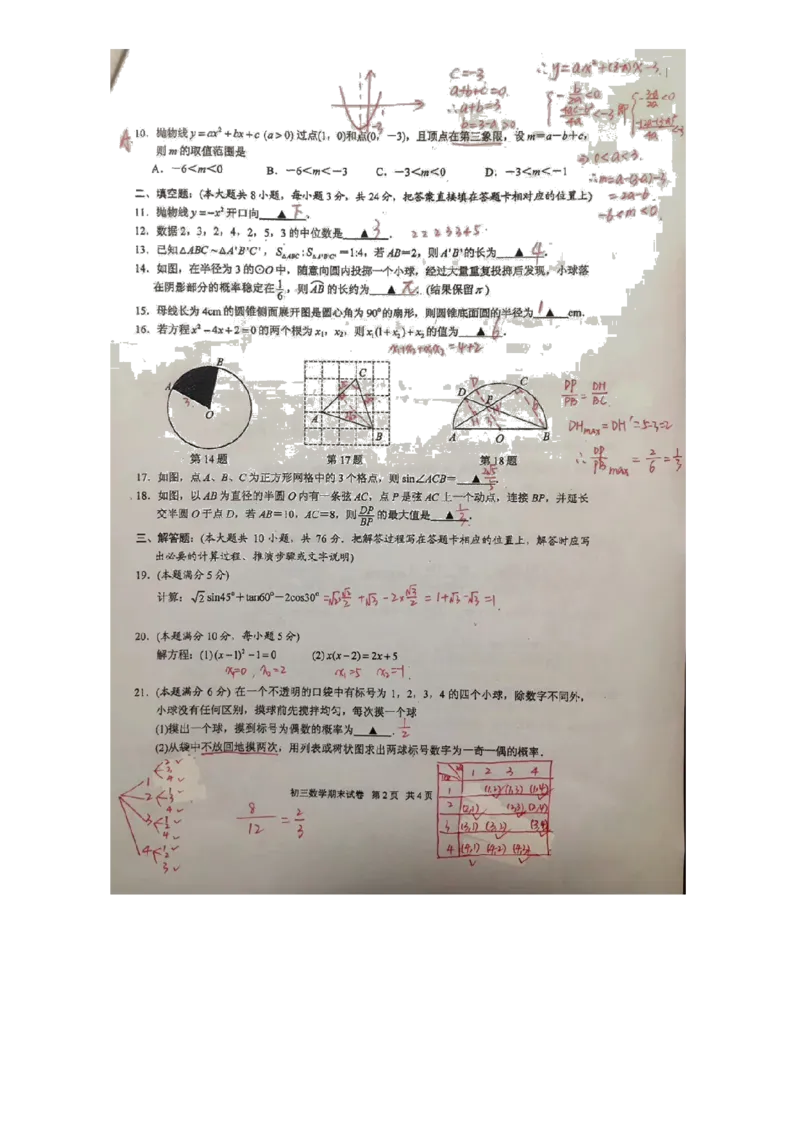 C=-3
a+b+c=0.
∴a+b=3
b=3-a>0
∴y=ax²+(3-a)x-3.
-b/2a<0
(4ac-b²)/4a<-3 即
⇒0<a<3.
∴m=a-(3-a)-3
=2a-6.
-6<m<0.
-3
A.
10. 抛物线y=ax²+bx+c (a>0)过点(1, 0)和点(0, -3),且顶点在第三象限,设m=a-b+c,
则m的取值范围是
A. -6<m<0 B. -6<m<-3 C. -3<m<0 D. -3<m<-1
二、填空题:(本大题共8小题,每小题3分,共24分,把答案直接填在答题卡相对应的位置上)
11. 抛物线y=-x²开口向 ▲ 下.
12. 数据2,3,2,4,2,5,3的中位数是 ▲ 3. 2 2 2 3 3 4 5.
13. 已知△ABC∽△A'B'C',S△ABC:S△A'B'C'=1:4,若AB=2,则A'B'的长为 ▲ 4.
14. 如图,在半径为3的⊙O中,随意向圆内投掷一个小球,经过大量重复投掷后发现,小球落
在阴影部分的概率稳定在1/6,则AB的长约为 ▲ π.(结果保留π)
15. 母线长为4cm的圆锥侧面展开图是圆心角为90°的扇形,则圆锥底面圆的半径为 1 ▲ cm.
16. 若方程x²-4x+2=0的两个根为x₁,x₂,则x₁(1+x₂)+x₂的值为 ▲ 6.
x₁+x₂+x₁x₂=4+2
A B O 3
第14题
A B C
第17题
A B C D P O H
第18题
DP/PB=DH/BC
DHmax=DH'=5-3=2
∴DP/PB max=2/6=1/3
17. 如图,点A、B、C为正方形网格中的3个格点,则sin∠ACB= ▲ .
18. 如图,以AB为直径的半圆O内有一条弦AC,点P是弦AC上一个动点,连接BP,并延长
交半圆O于点D,若AB=10,AC=8,则DP/BP的最大值是 ▲ 1/3.
三、解答题:(本大题共 10 小题,共 76 分.把解答过程写在答题卡相应的位置上,解答时应写
出必要的计算过程、推演步骤或文字说明)
19. (本题满分5分)
计算:√2sin45°+tan60°-2cos30° =√2×√2/2+√3-2×√3/2=1+√3-√3=1.
20. (本题满分10分,每小题5分)
解方程:(1)(x-1)²-1=0 (2)x(x-2)=2x+5
x₁=0, x₂=2 x₁=5 x₂=-1.
21. (本题满分 6分) 在一个不透明的口袋中有标号为 1,2,3,4 的四个小球,除数字不同外,
小球没有任何区别,摸球前先搅拌均匀,每次摸一个球
(1)摸出一个球,摸到标号为偶数的概率为 ▲ . 1/2
(2)从袋中不放回地摸两次,用列表或树状图求出两球标号数字为一奇一偶的概率.
1 2 3 4
1 (1,2) (1,3) (1,4)
2 (2,1) (2,3) (2,4)
3 (3,1) (3,2) (3,4)
4 (4,1) (4,2) (4,3)
1 2 3 4
2 1 3 4
3 1 2 4
4 1 2 3
8/12=2/3
初三数学期末试卷 第2页 共4页